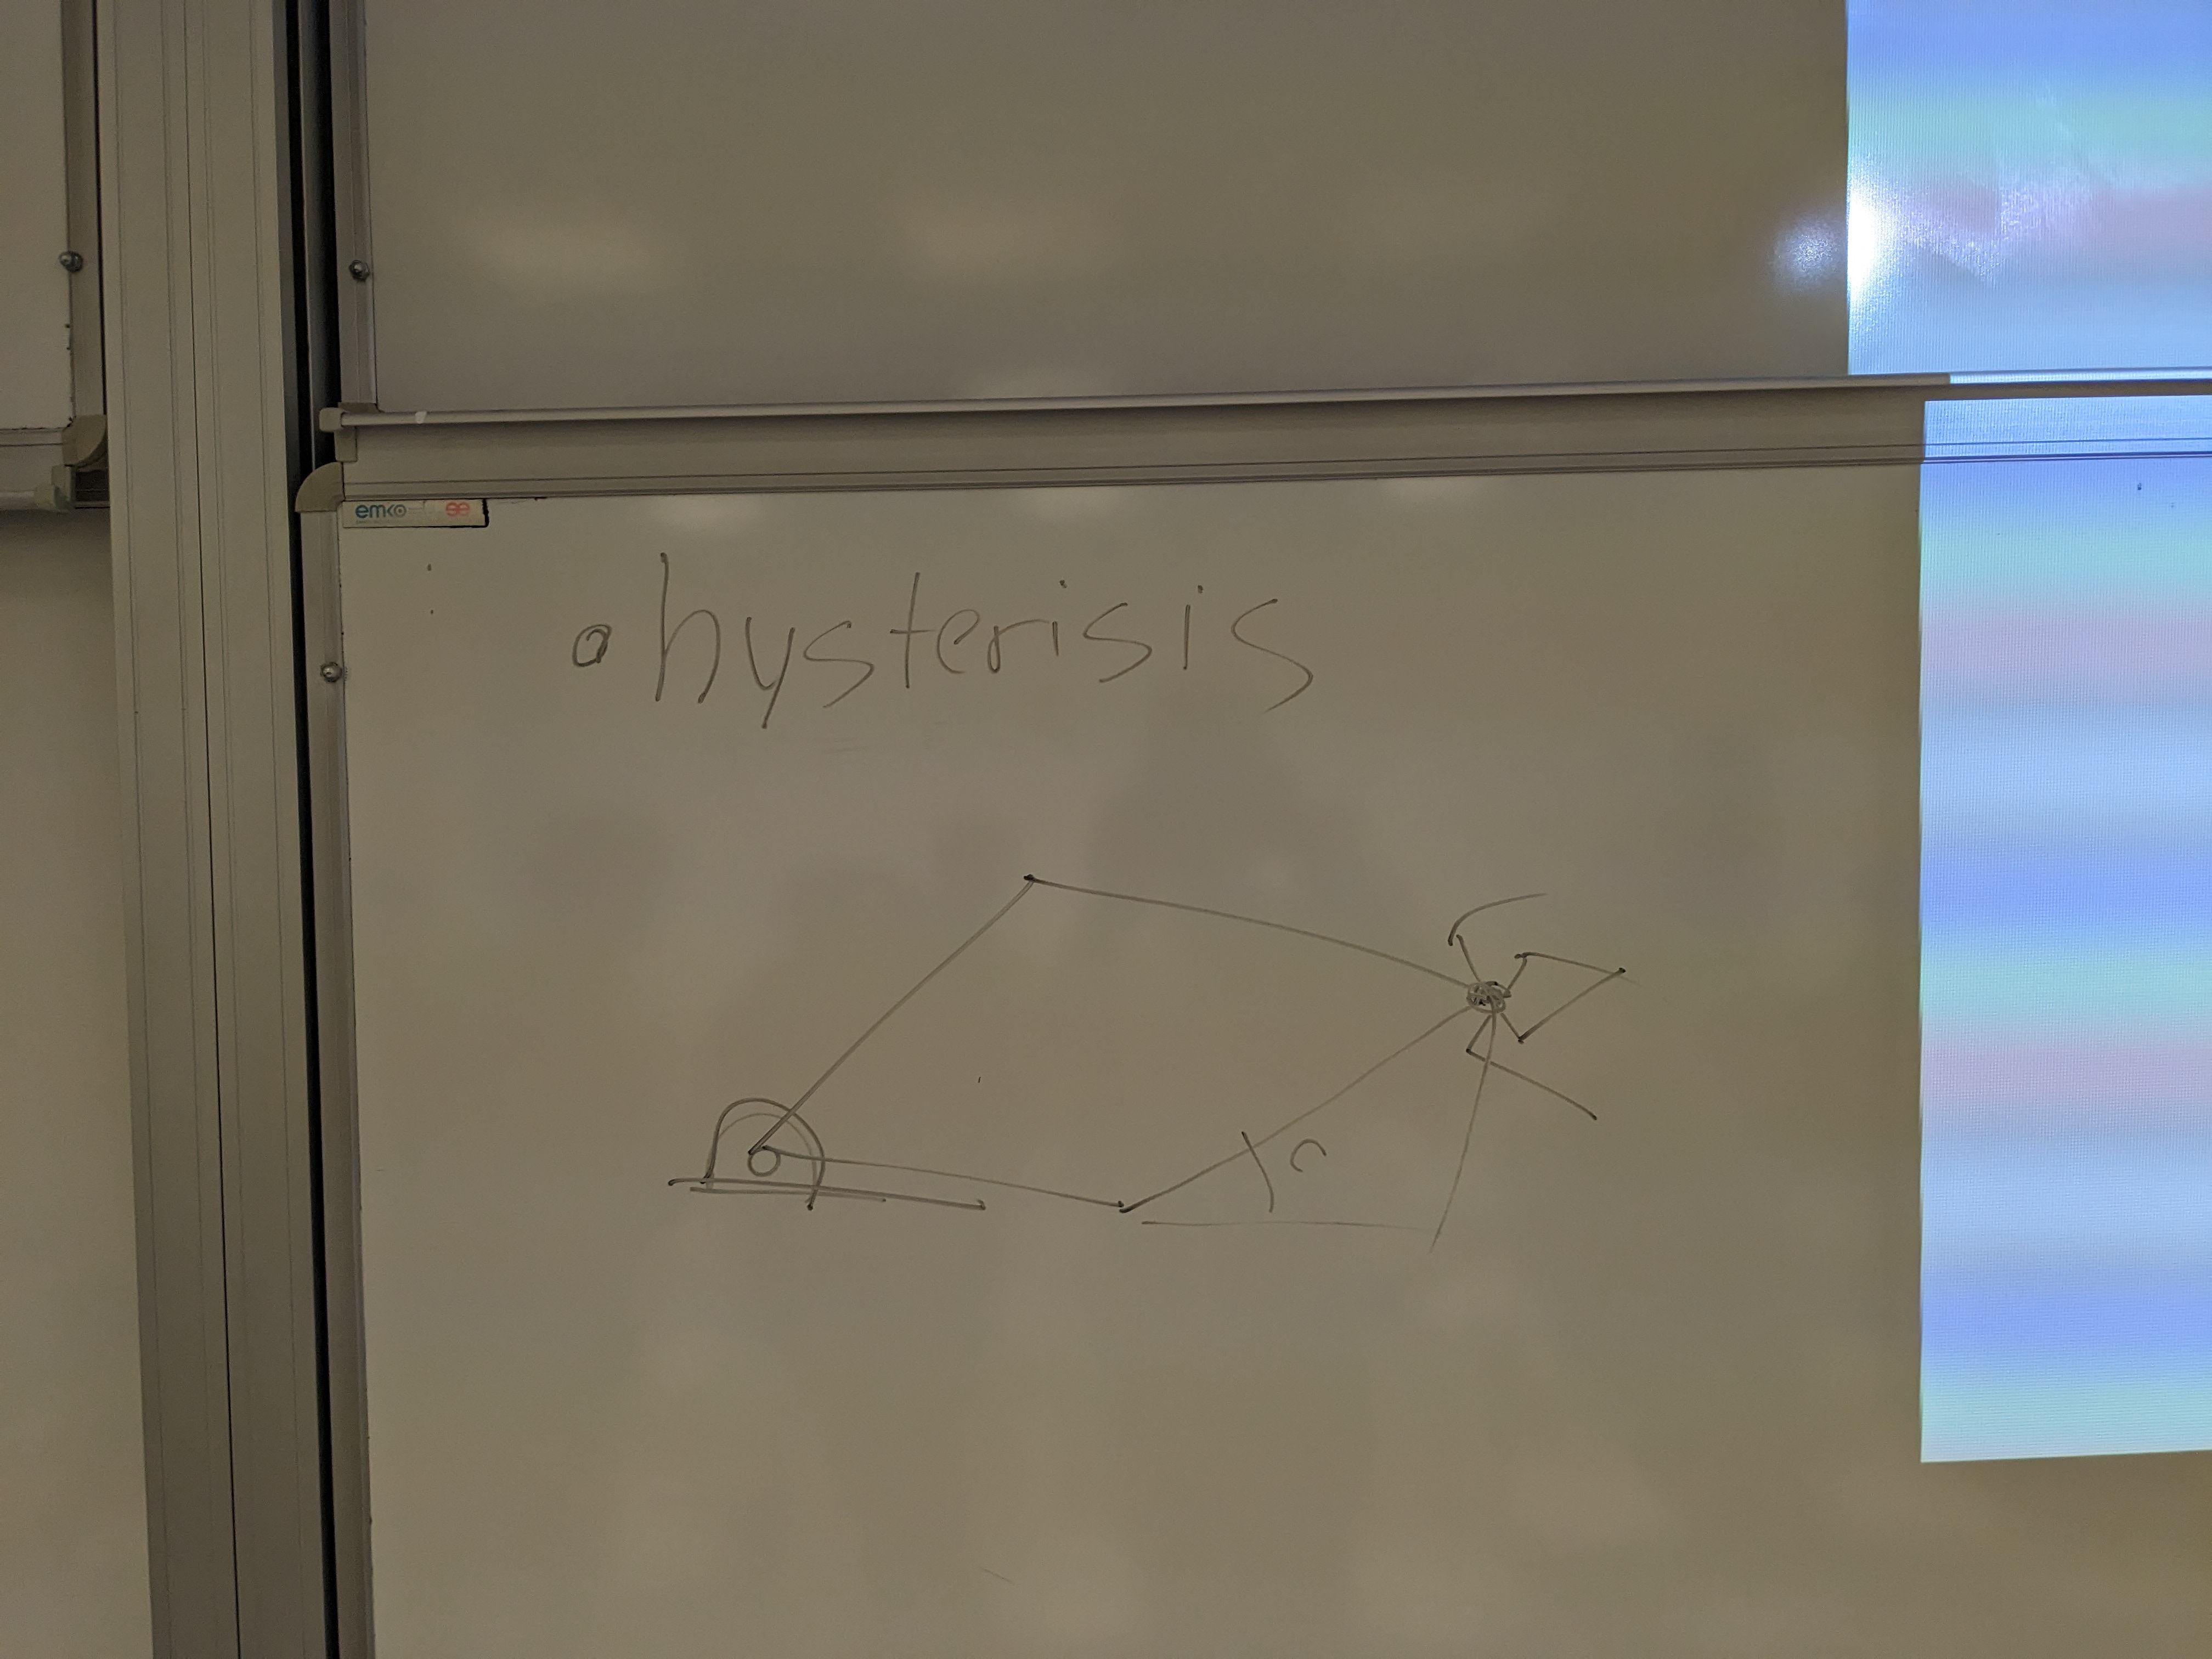 emko
hysterisis
c